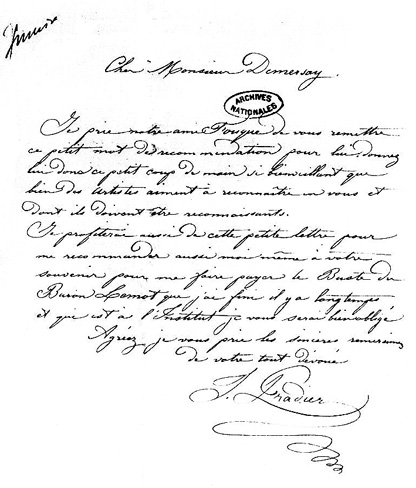 Cher Monsieur Demersay.
ARCHIVES
NATIONALES
Je prie notre ami Fouque de vous remettre
ce petit mot de recommendation pour lui donnez
lui donc ce petit coup de main si bienveillant que
bien des Artistes aiment à reconnaître en vous et
dont ils doivent être reconnaissants.
Je profiterai aussi de cette petite lettre pour
me recommander aussi moi même à votre
souvenir pour me faire payer le Buste du
Baron Lemot que j'ai fini il y a longtemps
et qui est à l'Institut je vous serai bien obligé
Agréez je vous prie les sincères
de votre tout dévoué
J. Pradier